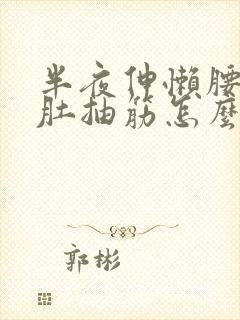 半夜伸懶腰
肚抽筋怎麼
郭彬